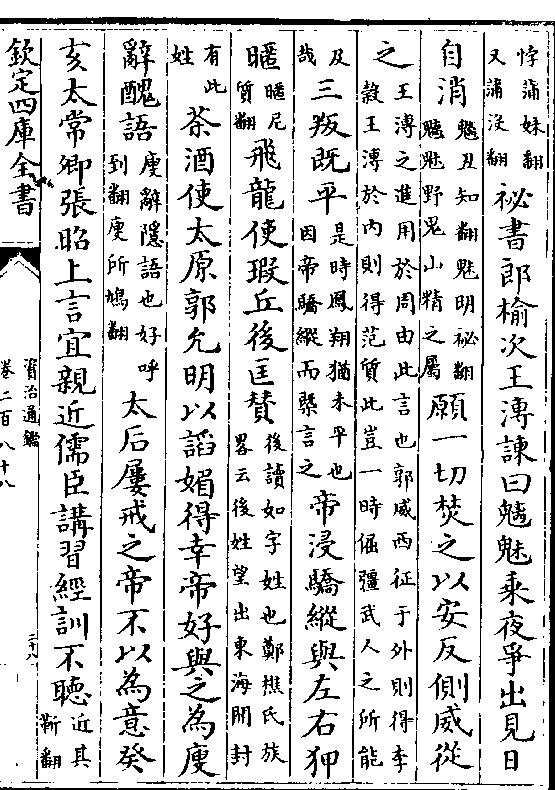 悖蒲妹翻
又蒲没翻
祕書郎榆次王溥諫曰魑魅乘夜爭出見日
自消
魑丑知翻魅明祕翻
魑魅野鬼山精之屬
願一切焚之以安反側威從
之
王溥之進用於周由此言也郭威西征于外則得李
穀王溥於内則得范質此豈一時倔彊武人之所能
及
哉
三叛既平
是時鳳翔猶未平也
因帝驕縱而槩言之
帝浸驕縱與左右狎
暱
暱尼
質翻
飛龍使瑕丘後匡贊
後讀如字姓也鄭樵氏族
畧云後姓望出東海開封
有此
姓
茶酒使太原郭允明以謟媚得幸帝好與之為廋
辭醜語
廋辭隱語也好呼
到翻廋所鳩翻
太后屢戒之帝不以為意癸
亥太常卿張昭上言宜親近儒臣講習經訓不聽
近其
靳翻
欽定四庫全書
資治通鑑
卷二百八十八
二十八